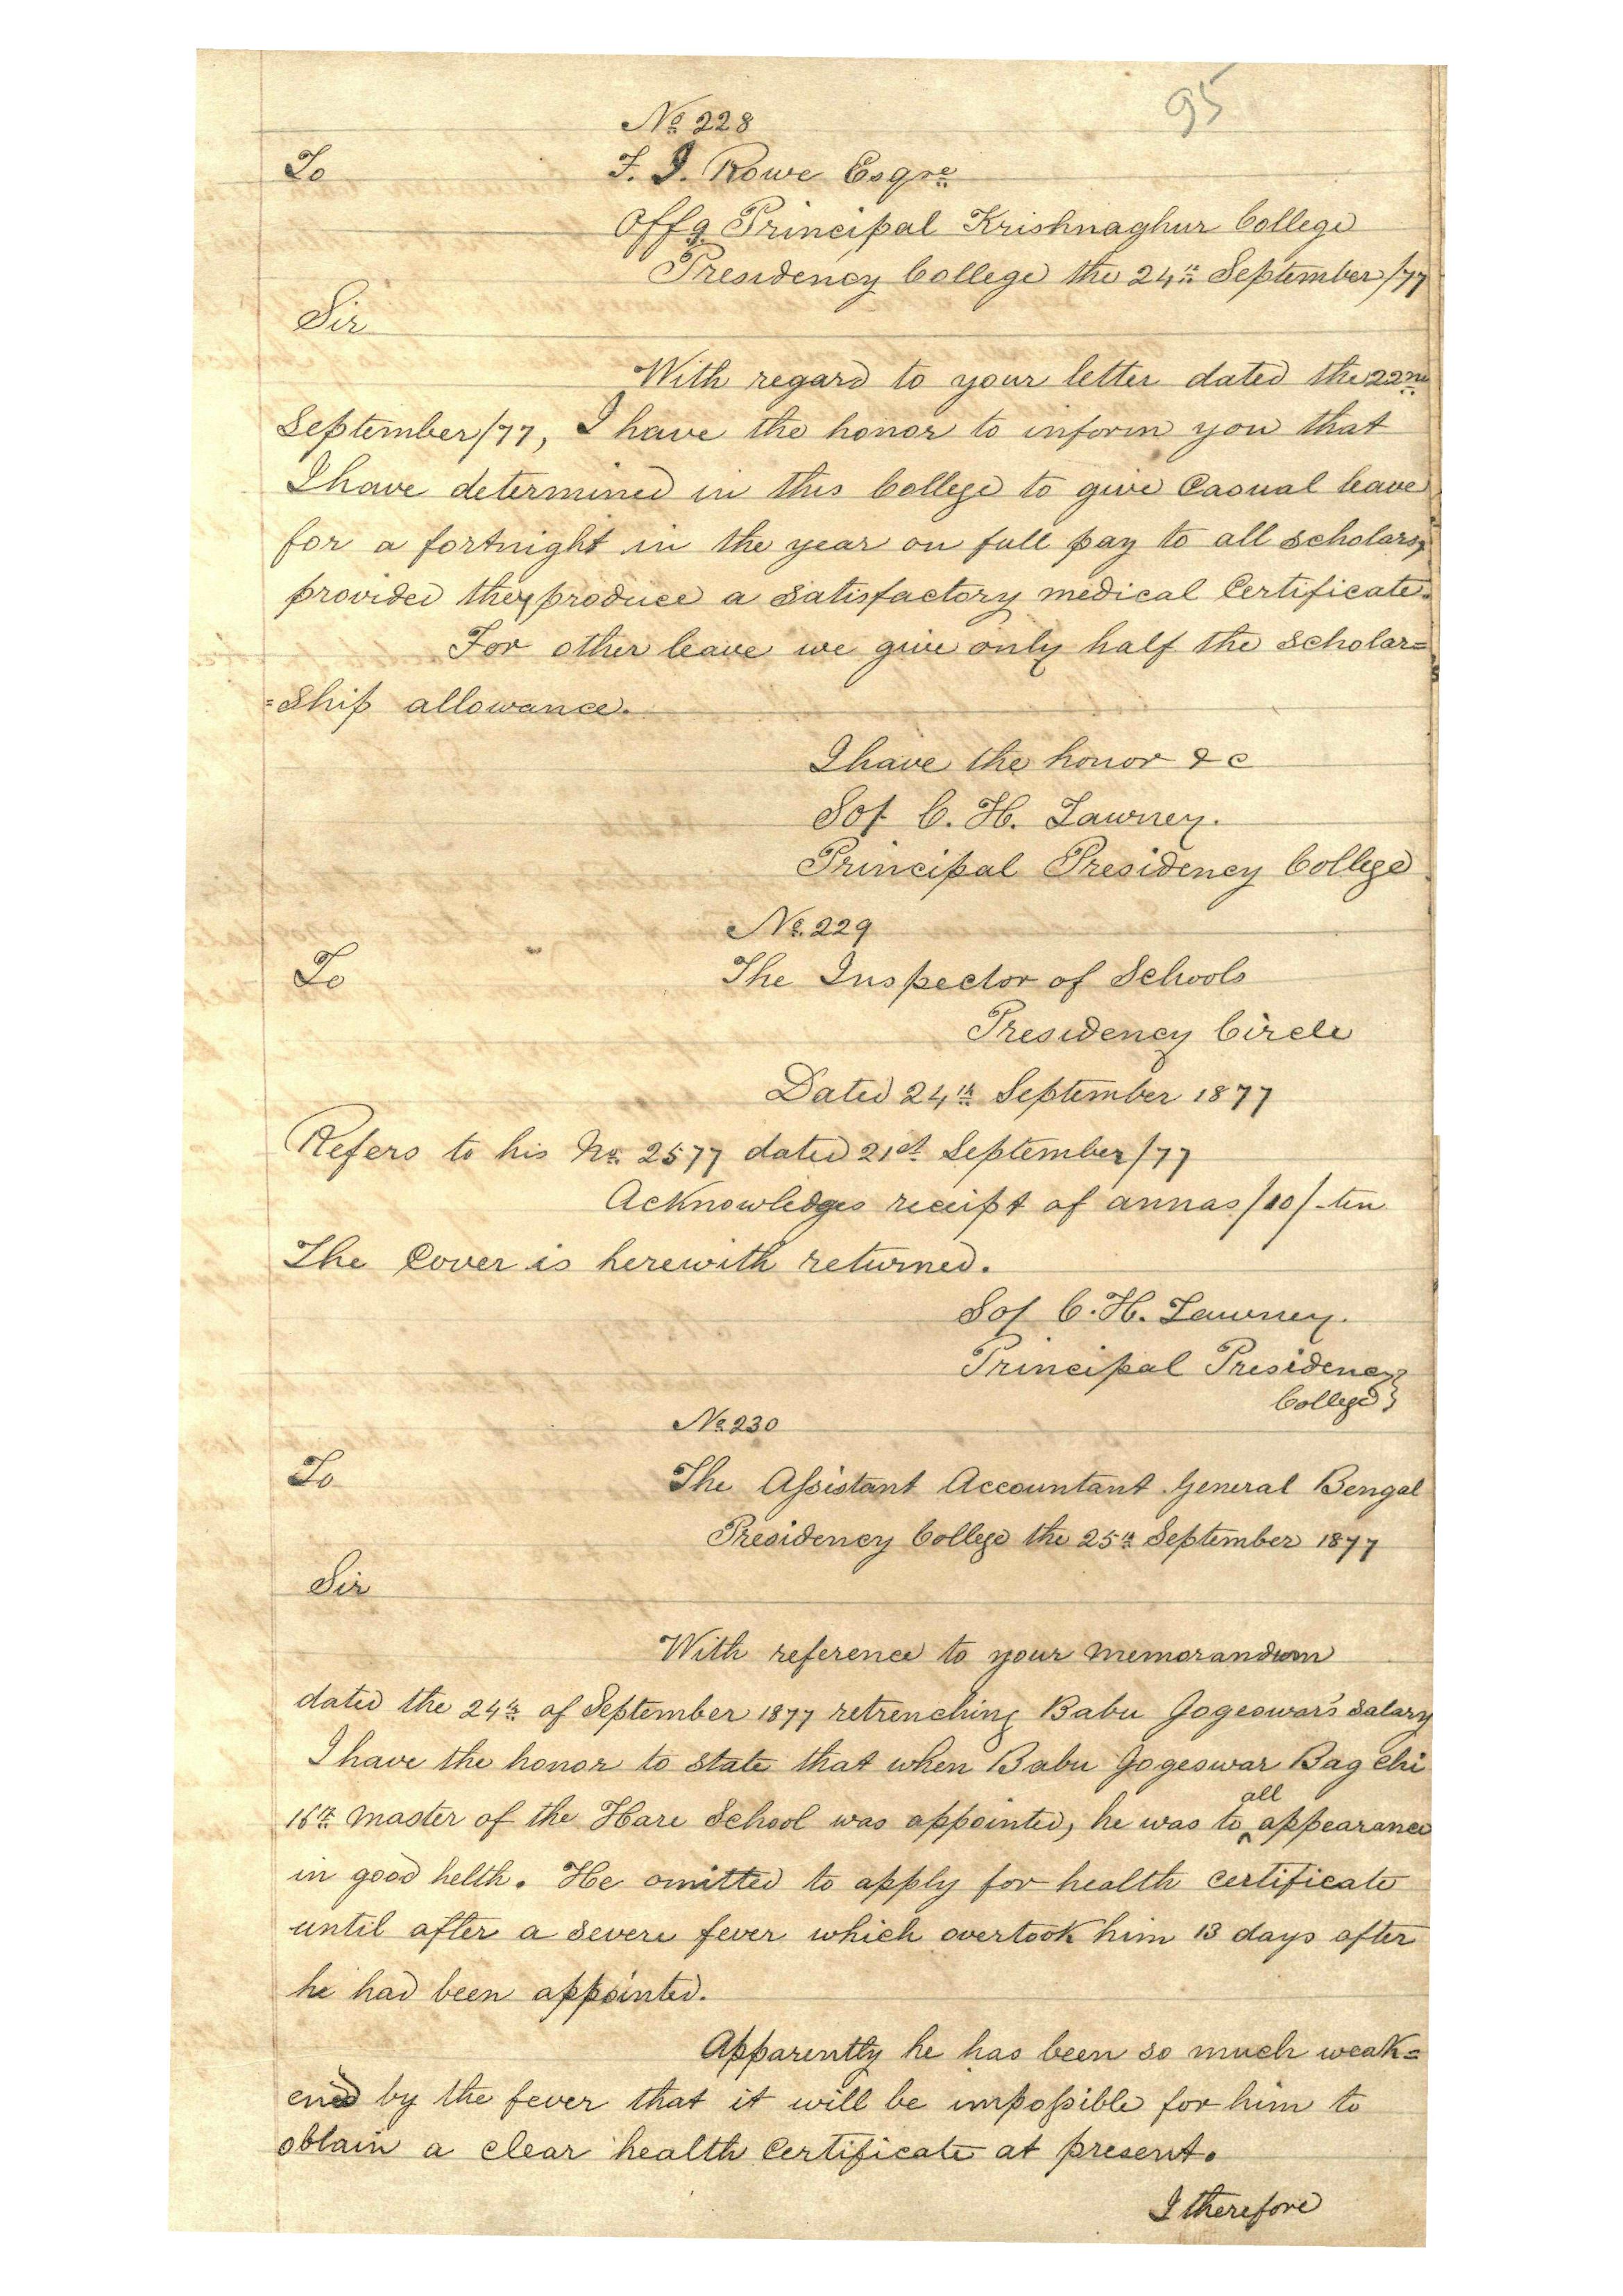 95
No 228
To F. J. Rowe Esqre
Offg Principal Krishnaghur College
Presidency College the 24th September/77
Sir
With regard to your letter dated the 22nd
September/77, I have the honor to inform you that
I have determined in this College to give Casual leave
for a fortnight in the year on full pay to all scholars,
provided they produce a satisfactory medical Certificate.
For other leave we give only half the scholar=
=ship allowance.
I have the honor &c
Sd/ C. H. Tawney.
Principal Presidency College
No. 229
To The Inspector of Schools
Presidency Circle
Dated 24th September 1877
Refers to his No. 2577 dated 21st September/77
Acknowledges receipt of annas /10/- ten
The Cover is herewith returned.
Sd/ C. H. Tawney.
Principal Presidency
College}
No 230
To The Assistant Accountant General Bengal
Presidency College the 25th September 1877
Sir
With reference to your memorandum
dated the 24th of September 1877 retrenching Babu Jogeswar's salary
I have the honor to state that when Babu Jogeswar Bagchi
16th Master of the Hare School was appointed, he was to all appearance
in good helth. He omitted to apply for health certificate
until after a severe fever which overtook him 13 days after
he had been appointed.
Apparently he has been so much weak=
ened by the fever that it will be impossible for him to
obtain a clear health Certificate at present.
I therefore